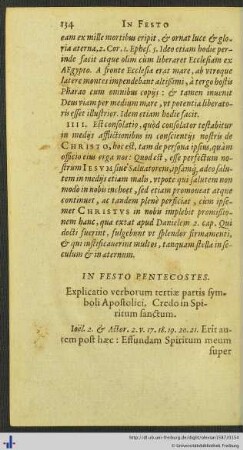 134 IN FESTO
eam ex mille mortibus eripit, & ornat luce & glo-
ria æterna, 2. Cor. 1. Ephes. 5. Ideo etiam hodie per-
inde facit atque olim cùm liberaret Ecclesiam ex
AEgypto. A fronte Ecclesia erat mare, ab utroque
latere montes impendebant altissimi, à tergo hostis
Pharao cum omnibus copijs: & tamen invenit
Deus viam per medium mare, ut potentia liberato-
ris esset illustrior. Idem etiam hodie facit.
IIII. Est consolatio, quòd consolator testabitur
in medijs afflictionibus in conscientijs nostris de
CHRISTO, hoc est, tam de persona ipsius, quàm
officio eius erga nos: Quod est, esse perfectum no-
strum IESVM siue Saluatorem, ipsamq; adeo salu-
tem in medijs etiam malis, vtpote qui salutem non
modò in nobis inchoet, sed etiam promoueat atque
continuet, ac tandem plenè perficiat, cum ipse-
met CHRISTVS in nobis implebit promissio-
nem hanc, qua extat apud Danielem 2. cap. Qui
docti fuerint, fulgebunt vt splendor firmamenti,
& qui iustificauerint multos, tanquam stellæ in se-
culum & in æternum.
IN FESTO PENTECOSTES.
Explicatio verborum tertiæ partis sym-
boli Apostolici, Credo in Spi-
ritum sanctum.
Ioël. 2. & Actor. 2. v. 17. 18. 19. 20. 21. Erit au-
tem post hæc: Effundam Spiritum meum
super
© Universitätsbibliothek Freiburg